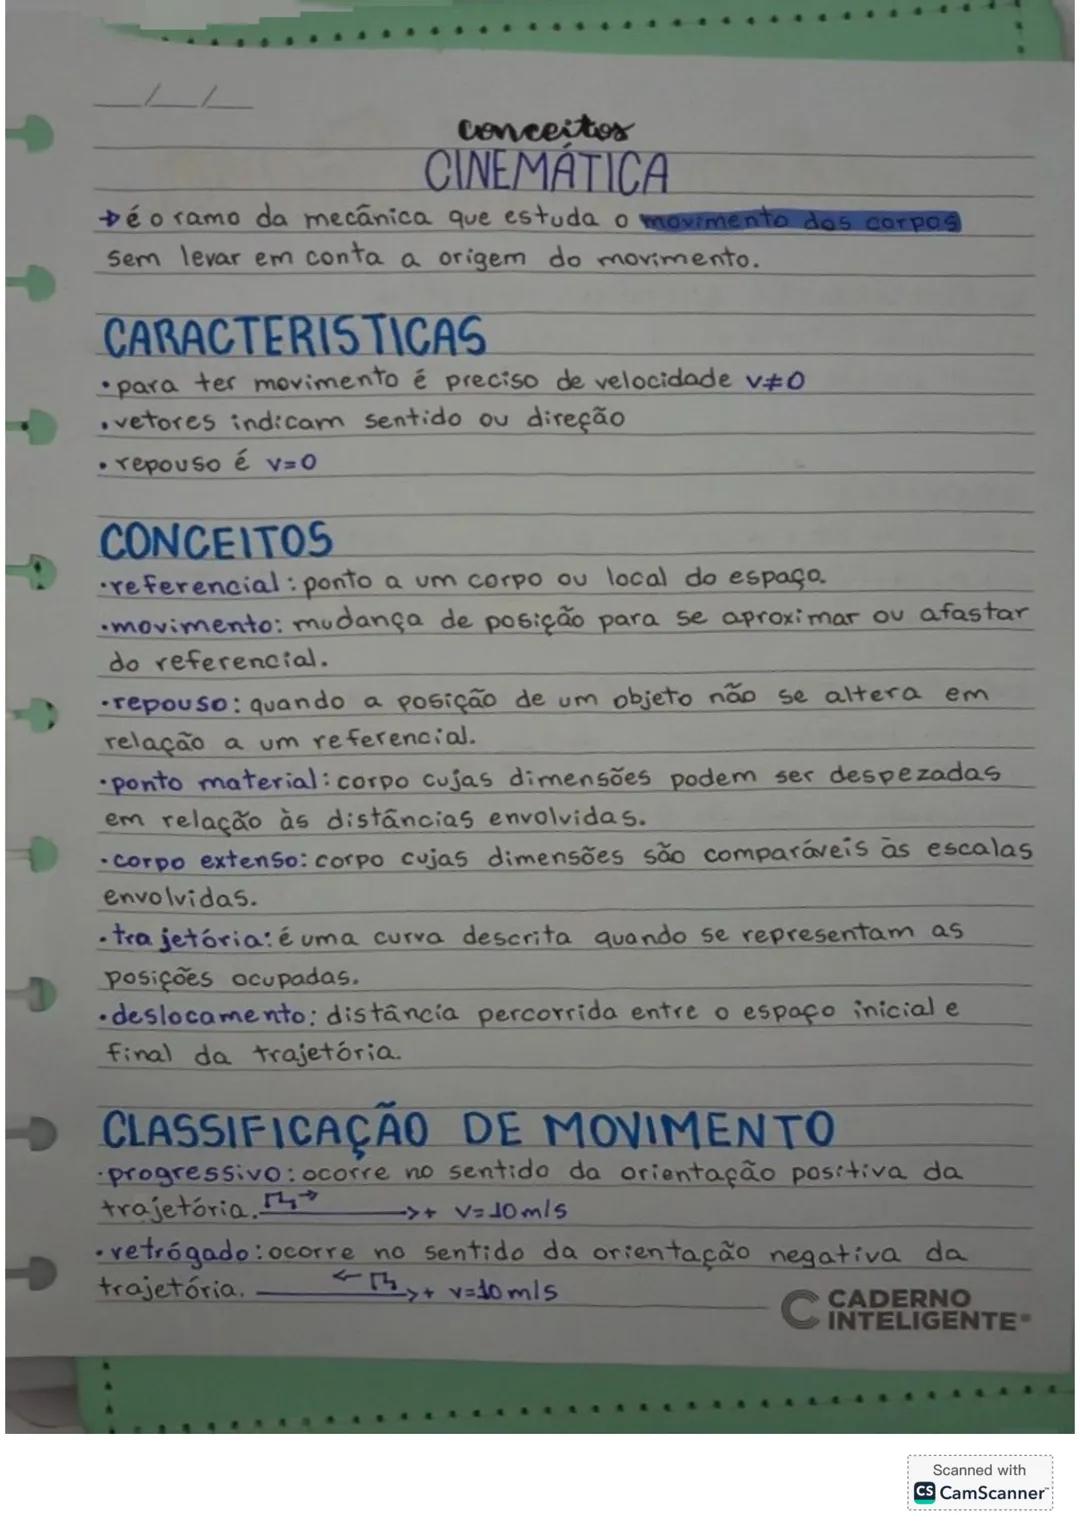 __/__/__
conceitos
CINEMÁTICA
→é o ramo da mecânica que estuda o movimento dos corpos
sem levar em conta a origem do movimento.
CARACTERISTICAS
•para ter movimento é preciso de velocidade v≠0
•vetores indicam sentido ou direção
•repouso é v=0
CONCEITOS
•referencial: ponto a um corpo ou local do espaço.
•movimento: mudança de posição para se aproximar ou afastar
do referencial.
•repouso: quando a posição de um objeto não se altera em
relação a um referencial.
•ponto material: corpo cujas dimensões podem ser despezadas
em relação às distâncias envolvidas.
•corpo extenso: corpo cujas dimensões são comparáveis às escalas
envolvidas.
•trajetória: é uma curva descrita quando se representam as
posições ocupadas.
•deslocamento: distância percorrida entre o espaço inicial e
final da trajetória.
CLASSIFICAÇÃO DE MOVIMENTO
•progressivo: ocorre no sentido da orientação positiva da
trajetória. → + v=10m/s
•retrógado: ocorre no sentido da orientação negativa da
trajetória. ← + v=10m/s
CADERNO
INTELIGENTE®
Scanned with
CS CamScanner